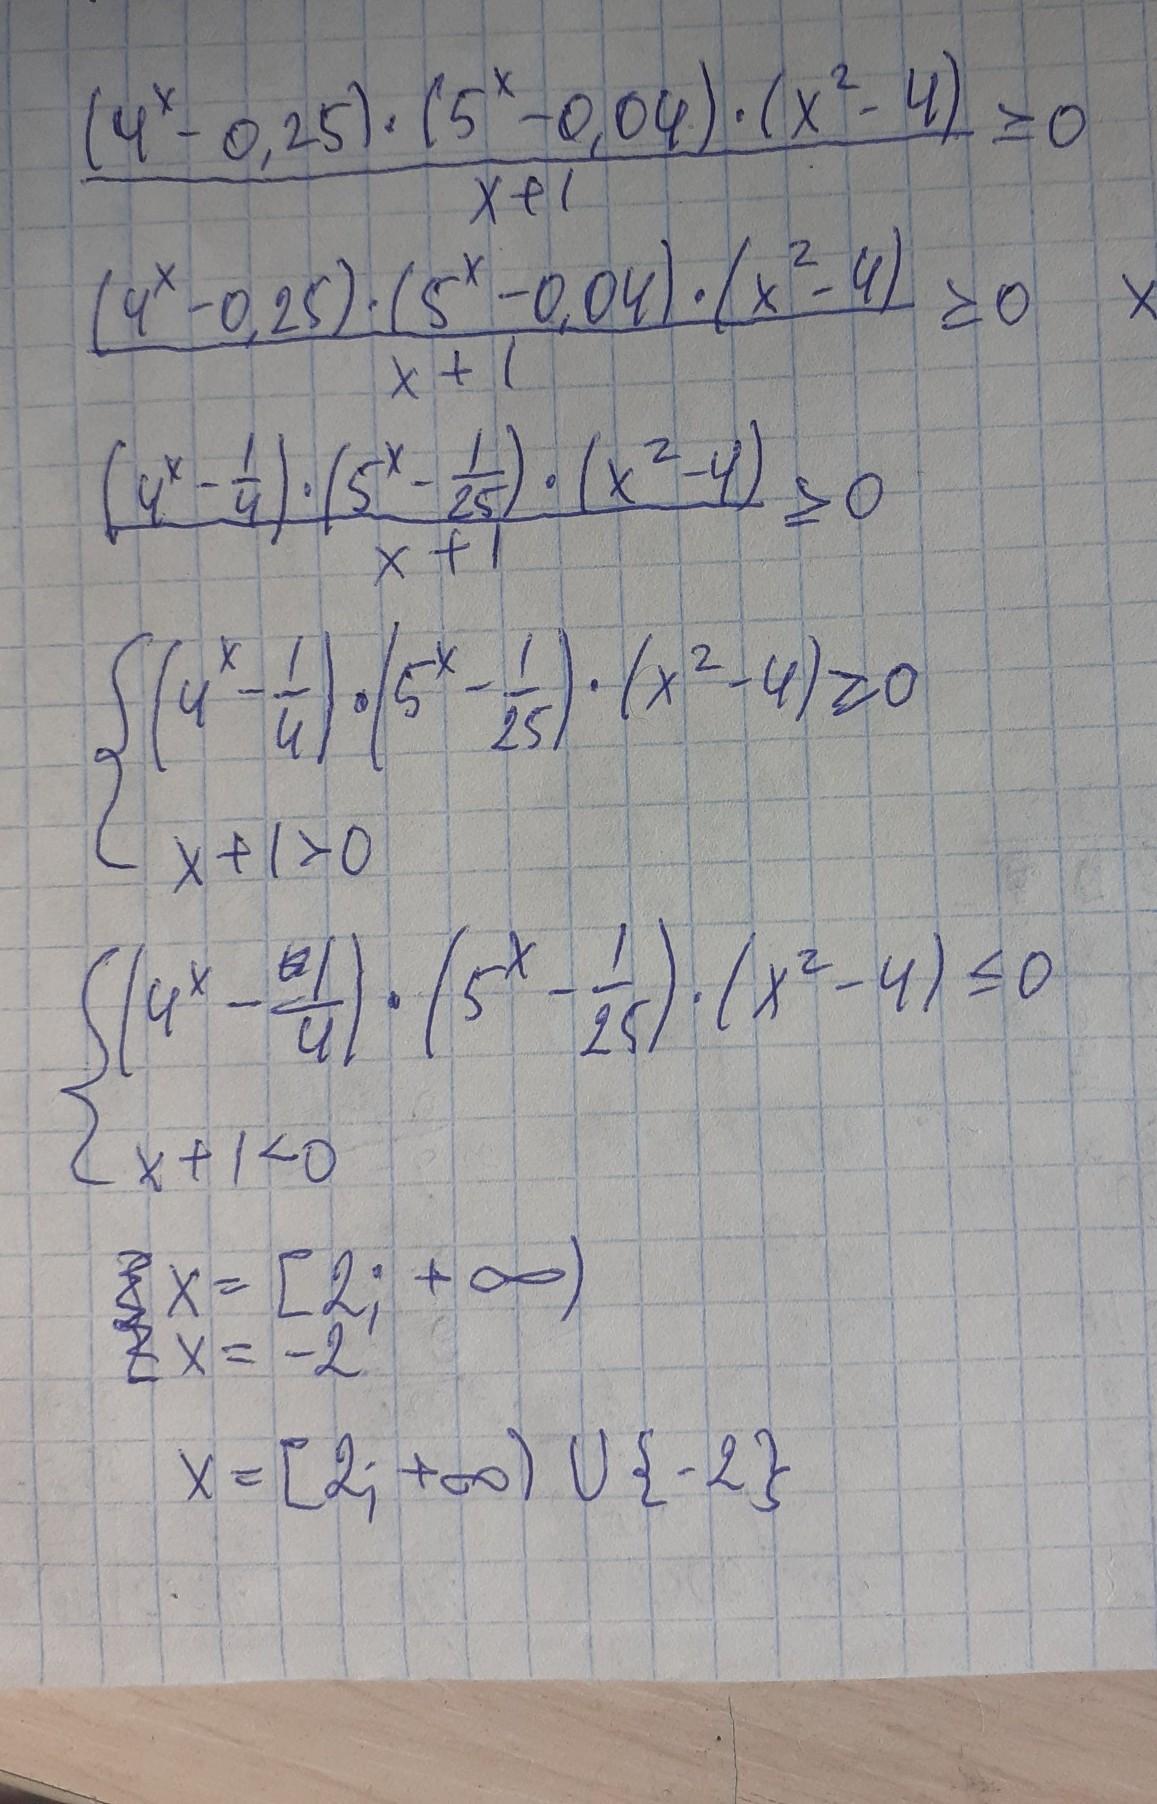 (4^x - 0,25) · (5^x - 0,04) · (x² - 4) ≥ 0
x + 1
(4^x - 0,25) · (5^x - 0,04) · (x² - 4) ≥ 0 x
x + 1
(4^x - 1/4) · (5^x - 1/25) · (x² - 4) ≥ 0
x + 1
{ (4^x - 1/4) · (5^x - 1/25) · (x² - 4) ≥ 0
x + 1 > 0
{ (4^x - 1/4) · (5^x - 1/25) · (x² - 4) ≤ 0
x + 1 < 0
x = [2; + ∞)
x = -2
x = [2; +∞) ∪ {-2}